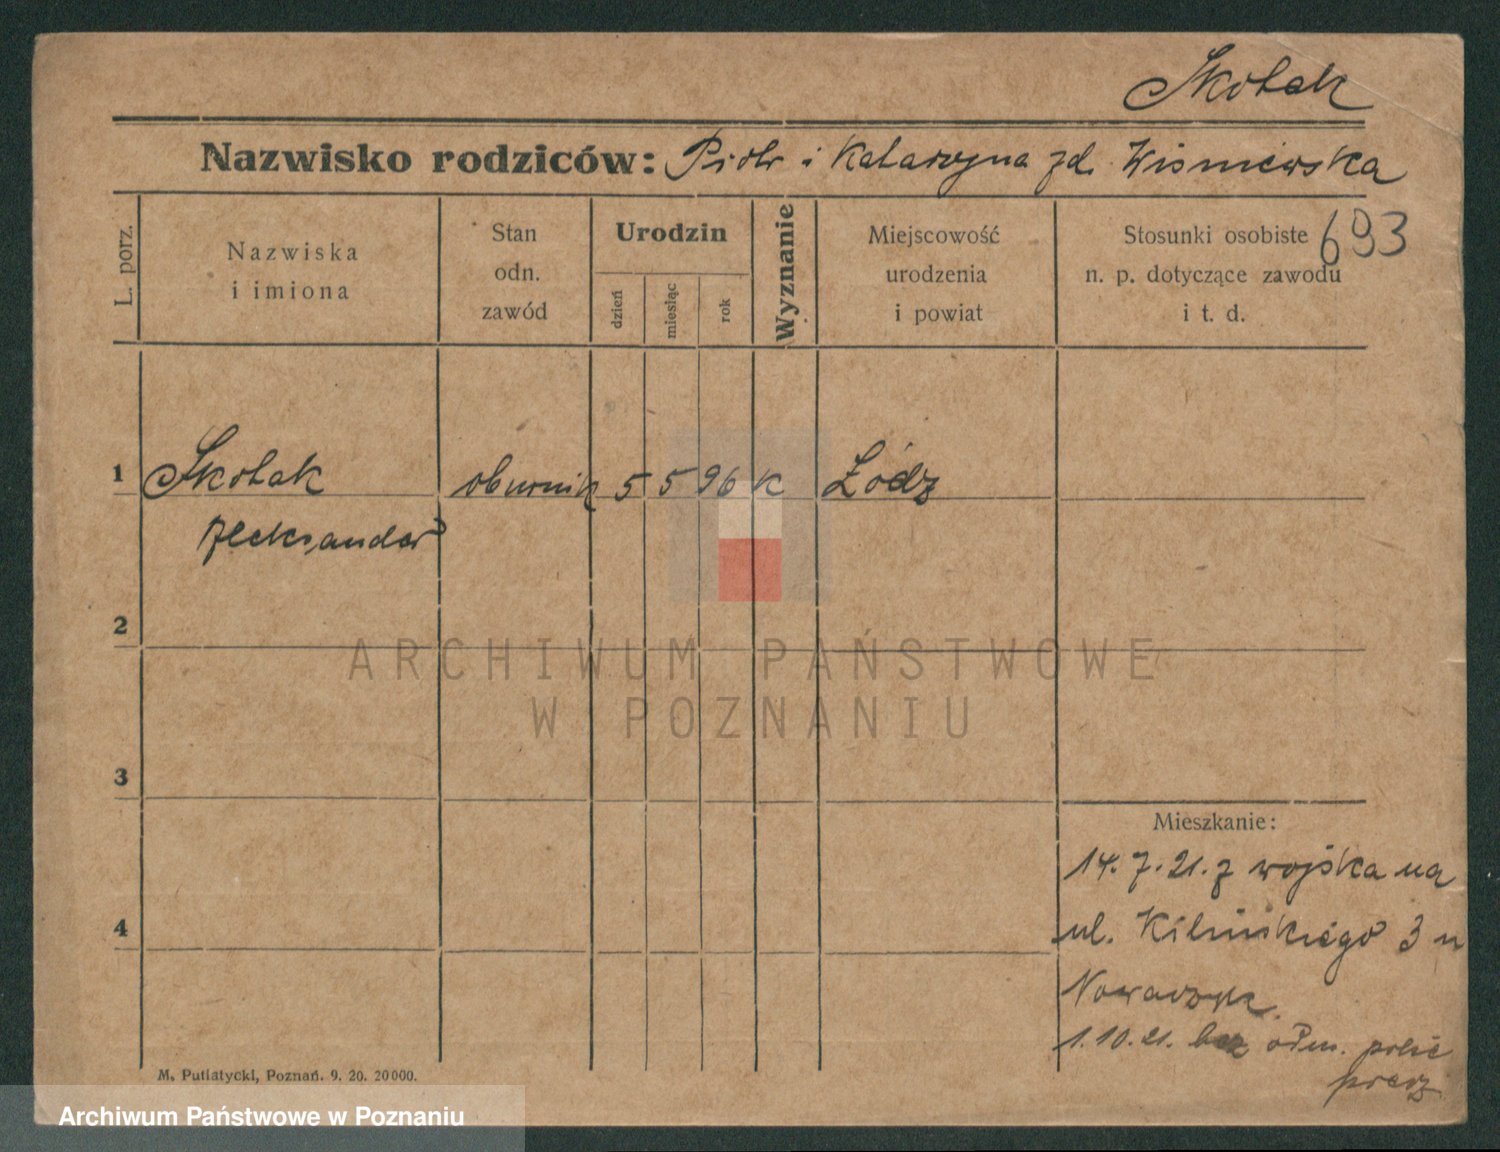 Skotak
Nazwisko rodziców: Piotr i Katarzyna zd. Wiśniewska
693
L. porz.
Nazwiska
i imiona
Stan
odn.
zawód
Urodzin
dzień
miesiąc
rok
Wyznanie
Miejscowość
urodzenia
i powiat
Stosunki osobiste
n. p. dotyczące zawodu
i t. d.
1 Skotak 5 5 96 k Łódz
Aleksander
2
3
4
Mieszkanie:
14.7.21. z wojska na
ul. Kilińskiego 3 u
1.10.21. bez
M. Putiatycki, Poznań. 9. 20. 20000.
ARCHIWUM PAŃSTWOWE
W POZNANIU
Archiwum Państwowe w Poznaniu